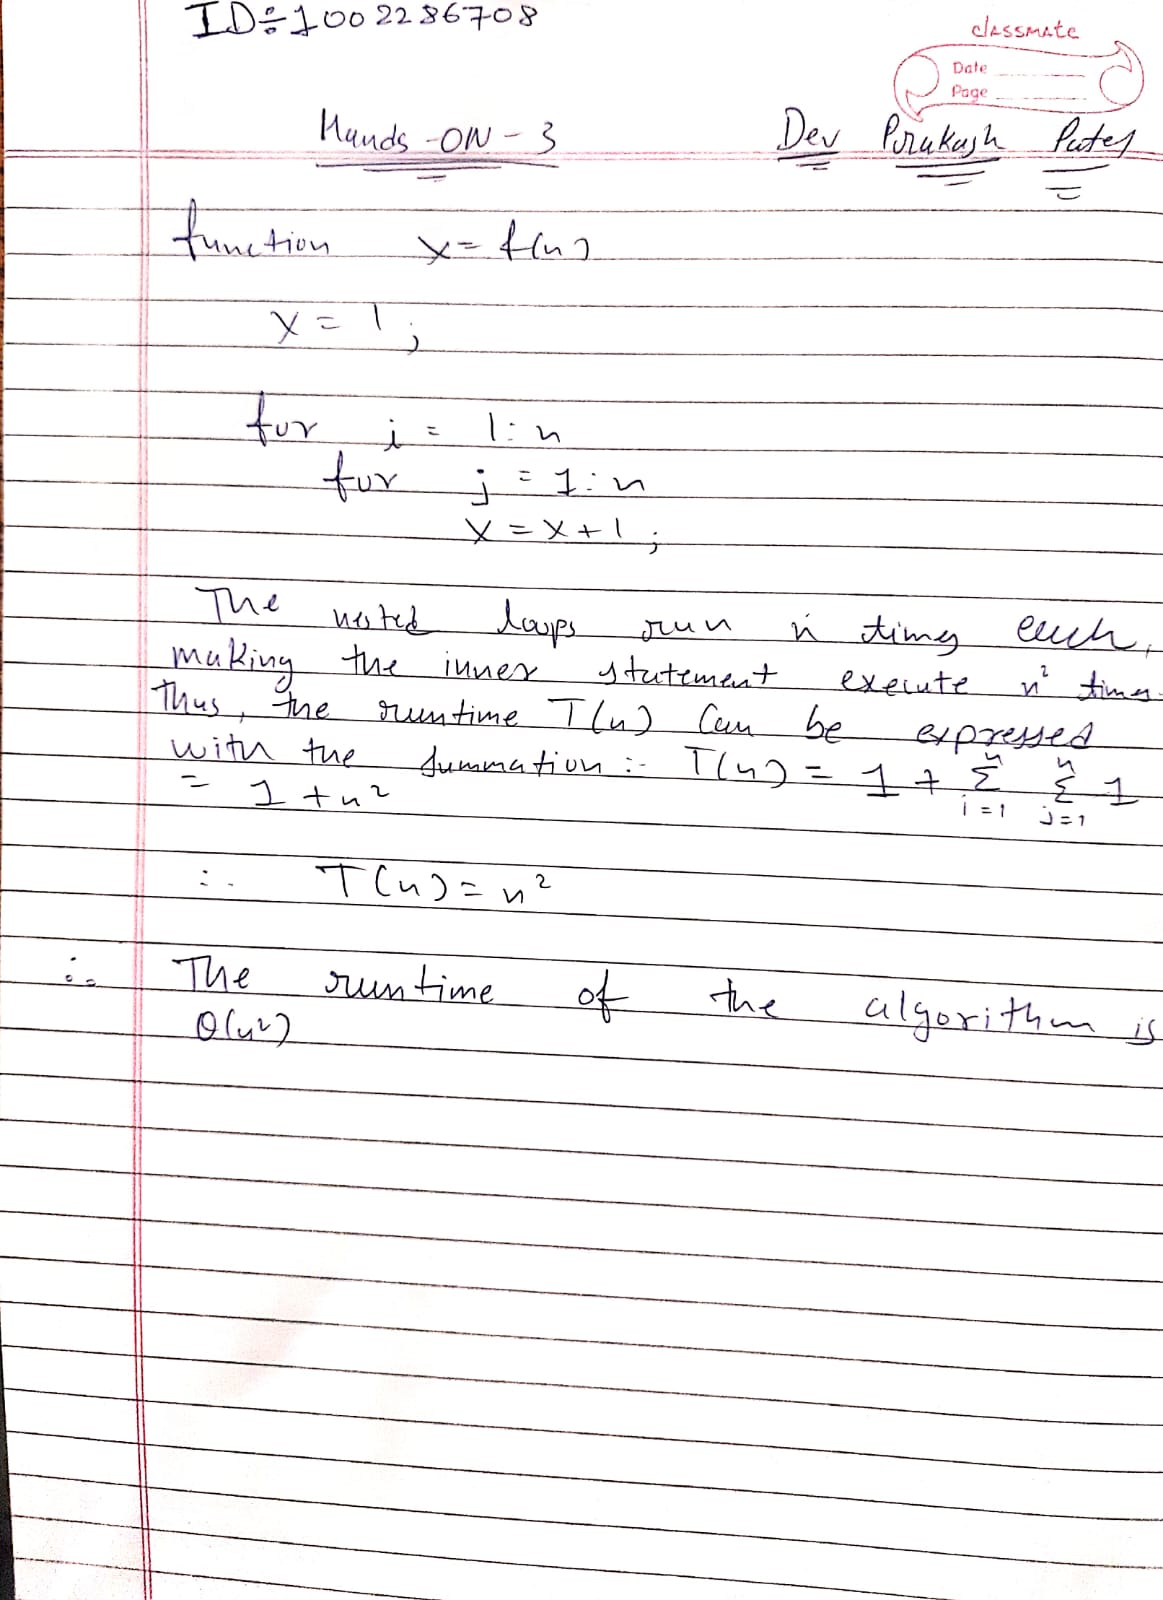 ID÷1002286708
classmate
Date
Page
Hands-ON-3 Dev Prakash Patel
function x=f(n)
x = 1;
for i = 1:n
for j = 1:n
x = x+1;
The nested loops run n times each,
making the inner statement execute n² times.
Thus, the runtime T(n) can be expressed
with the summation :- T(n) = 1 + Σ(i=1 to n) Σ(j=1 to n) 1
= 1 + n²
∴ T(n) = n²
∴ The runtime of the algorithm is
Θ(n²)